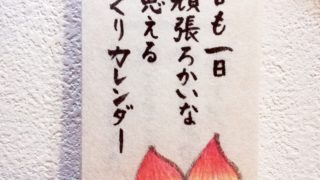 も一日
頑張ろかいな
思える
くりカレンダー